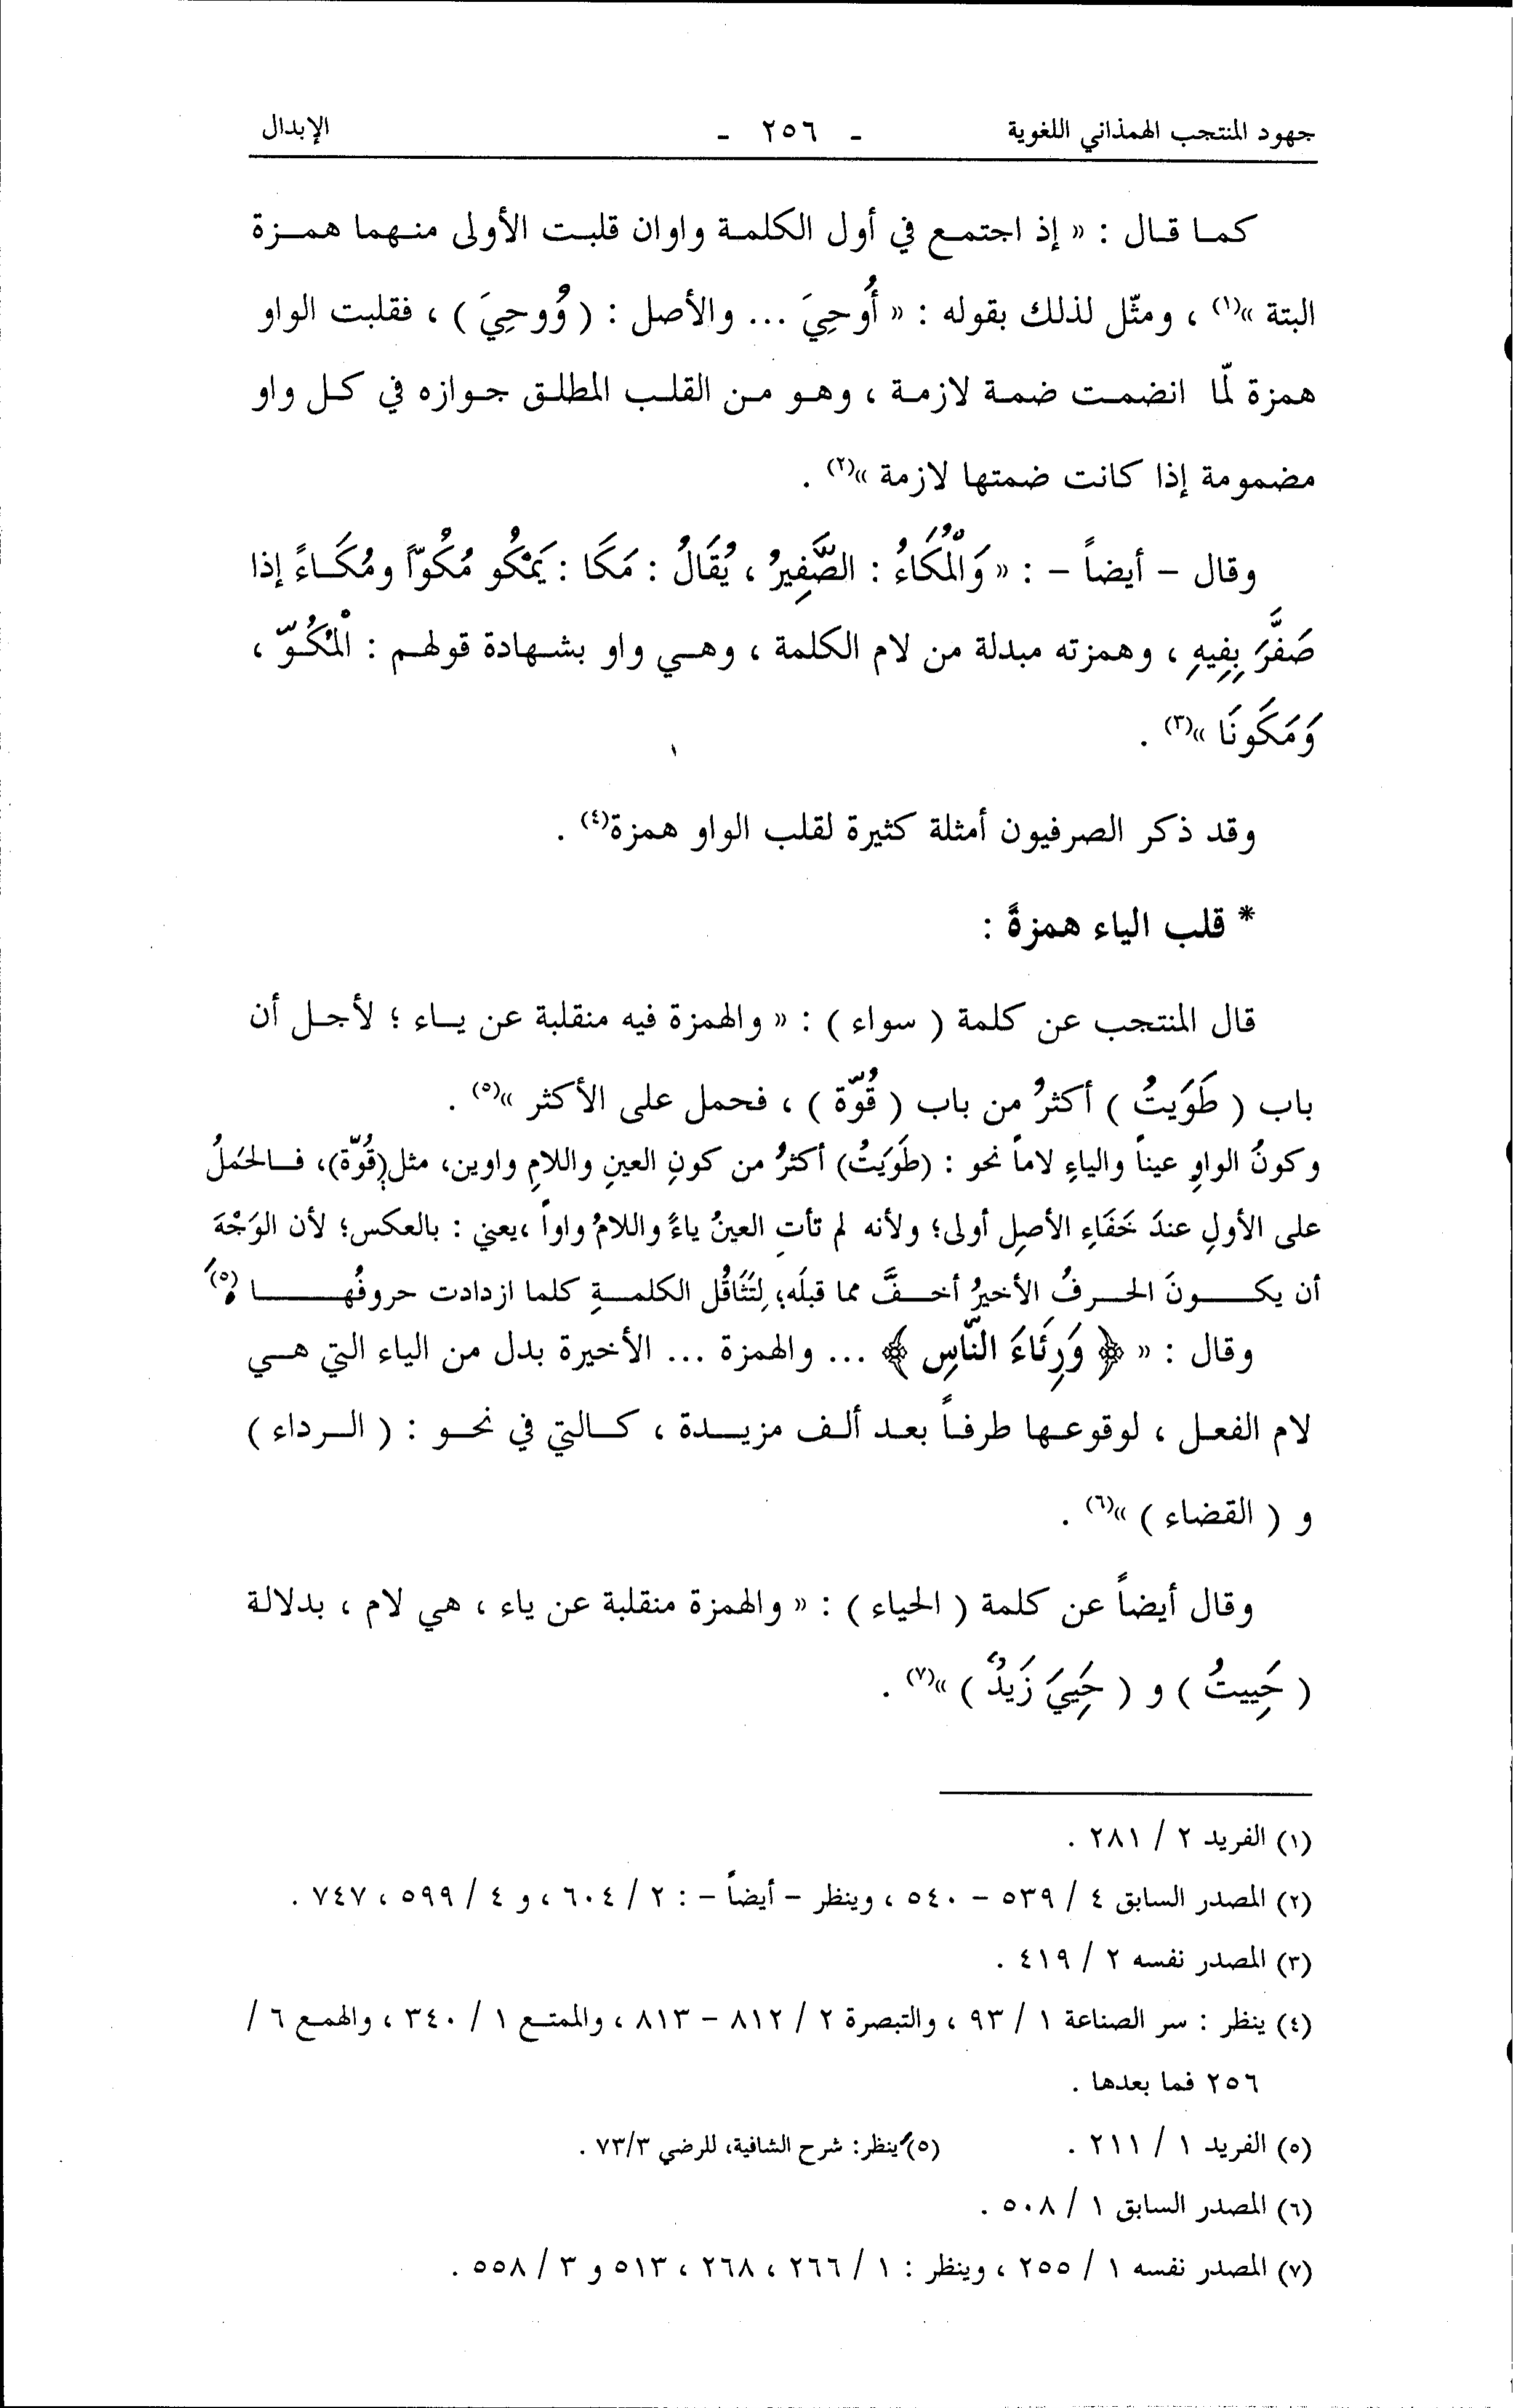 جهود المنتجب الهمذاني اللغوية - ٢٥٦ - الإبدال
كما قال : « إذ اجتمع في أول الكلمة واوان قلبت الأولى منهما همزة
البتة »(١) ، ومثّل لذلك بقوله : « أُوحِيَ ... والأصل : ( وُوحِيَ ) ، فقلبت الواو
همزة لمّا انضمت ضمة لازمة ، وهو من القلب المطلق جوازه في كل واو
مضمومة إذا كانت ضمتها لازمة »(٢) .
وقال – أيضاً – : « وَالْمُكَاءُ : الصَّفِيرُ ، يُقَالُ : مَكَا : يَمْكُو مُكُوّاً ومُكَاءً إذا
صَفَّرَ بِفِيهِ ، وهمزته مبدلة من لام الكلمة ، وهي واو بشهادة قولهم : الْمُكُوّ ،
وَمَكَونَا »(٣) .
وقد ذكر الصرفيون أمثلة كثيرة لقلب الواو همزة(٤) .
* قلب الياء همزةً :
قال المنتجب عن كلمة ( سواء ) : « والهمزة فيه منقلبة عن ياء ؛ لأجل أن
باب ( طَوَيتُ ) أكثرُ من باب ( قُوّة ) ، فحمل على الأكثر »(٥) .
وكونُ الواوِ عيناً والياءِ لاماً نحو : (طَوَيَتُ) أكثرُ من كونِ العينِ واللامِ واوين، مثل(قُوّة)، فالحَملُ
على الأولِ عندَ خَفَاءِ الأصلِ أولى؛ ولأنه لم تأتِ العينُ ياءً واللامُ واواً ،يعني : بالعكس؛ لأن الوَجْهَ
أن يكونَ الحرفُ الأخيرُ أخفَّ مما قبلَه؛ لِتَثَاقُل الكلمةِ كلما ازدادت حروفُها (٥)َ
وقال : « ﴿ وَرِئَاءَ النَّاسِ ﴾ ... والهمزة ... الأخيرة بدل من الياء التي هي
لام الفعل ، لوقوعها طرفاً بعد ألف مزيدة ، كالتي في نحو : ( الرداء )
و ( القضاء ) »(٦) .
وقال أيضاً عن كلمة ( الحياء ) : « والهمزة منقلبة عن ياء ، هي لام ، بدلالة
( حَيِيتُ ) و ( حَيِيَ زَيدٌ ) »(٧) .
(١) الفريد ٢ / ٢٨١ .
(٢) المصدر السابق ٤ / ٥٣٩ – ٥٤٠ ، وينظر – أيضاً – : ٢ / ٦٠٤ ، و ٤ / ٥٩٩ ، ٧٤٧ .
(٣) المصدر نفسه ٢ / ٤١٩ .
(٤) ينظر : سر الصناعة ١ / ٩٣ ، والتبصرة ٢ / ٨١٢ – ٨١٣ ، والممتع ١ / ٣٤٠ ، والهمع ٦ /
٢٥٦ فما بعدها .
(٥) الفريد ١ / ٢١١ . (٥)َ ينظر: شرح الشافية، للرضي ٧٣/٣ .
(٦) المصدر السابق ١ / ٥٠٨ .
(٧) المصدر نفسه ١ / ٢٥٥ ، وينظر : ١ / ٢٦٦ ، ٢٦٨ ، ٥١٣ و ٣ / ٥٥٨ .